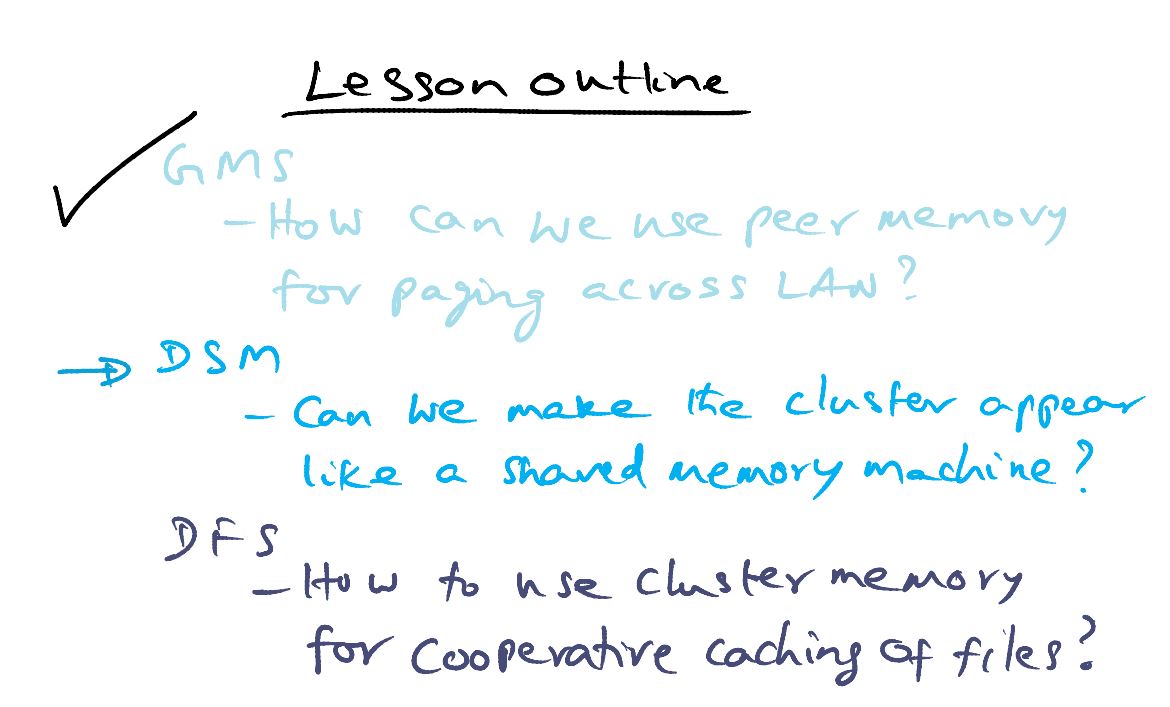 Lesson outline
GMS
- How can we use peer memory
for paging across LAN?
DSM
- Can we make the cluster appear
like a shared memory machine?
DFS
- How to use cluster memory
for cooperative caching of files?